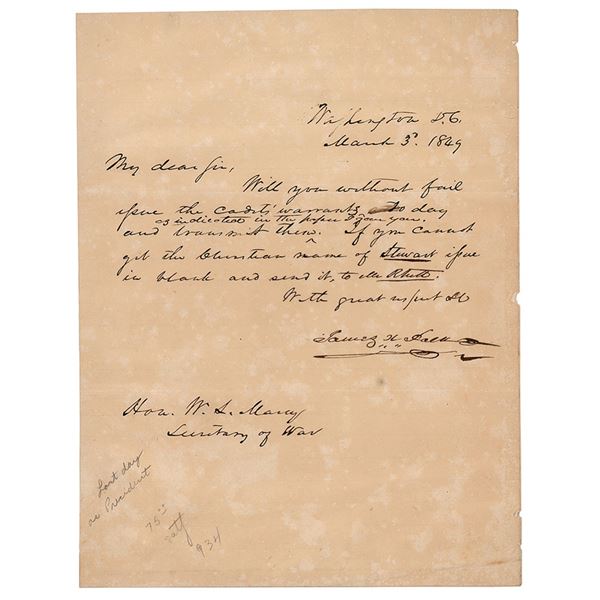 Washington D.C.
March 3d. 1849
My dear Sir,
Will you without fail
issue the cadets' warrants to day
as indicated in the paper I gave you.
and transmit them. ^ If you cannot
get the Christian name of Stewart issue
in blank and send it, to Mr Rhett.
With great respect &c
James K. Polk
Hon. W. L. Marcy
Secretary of War
Last day
as President
75
934